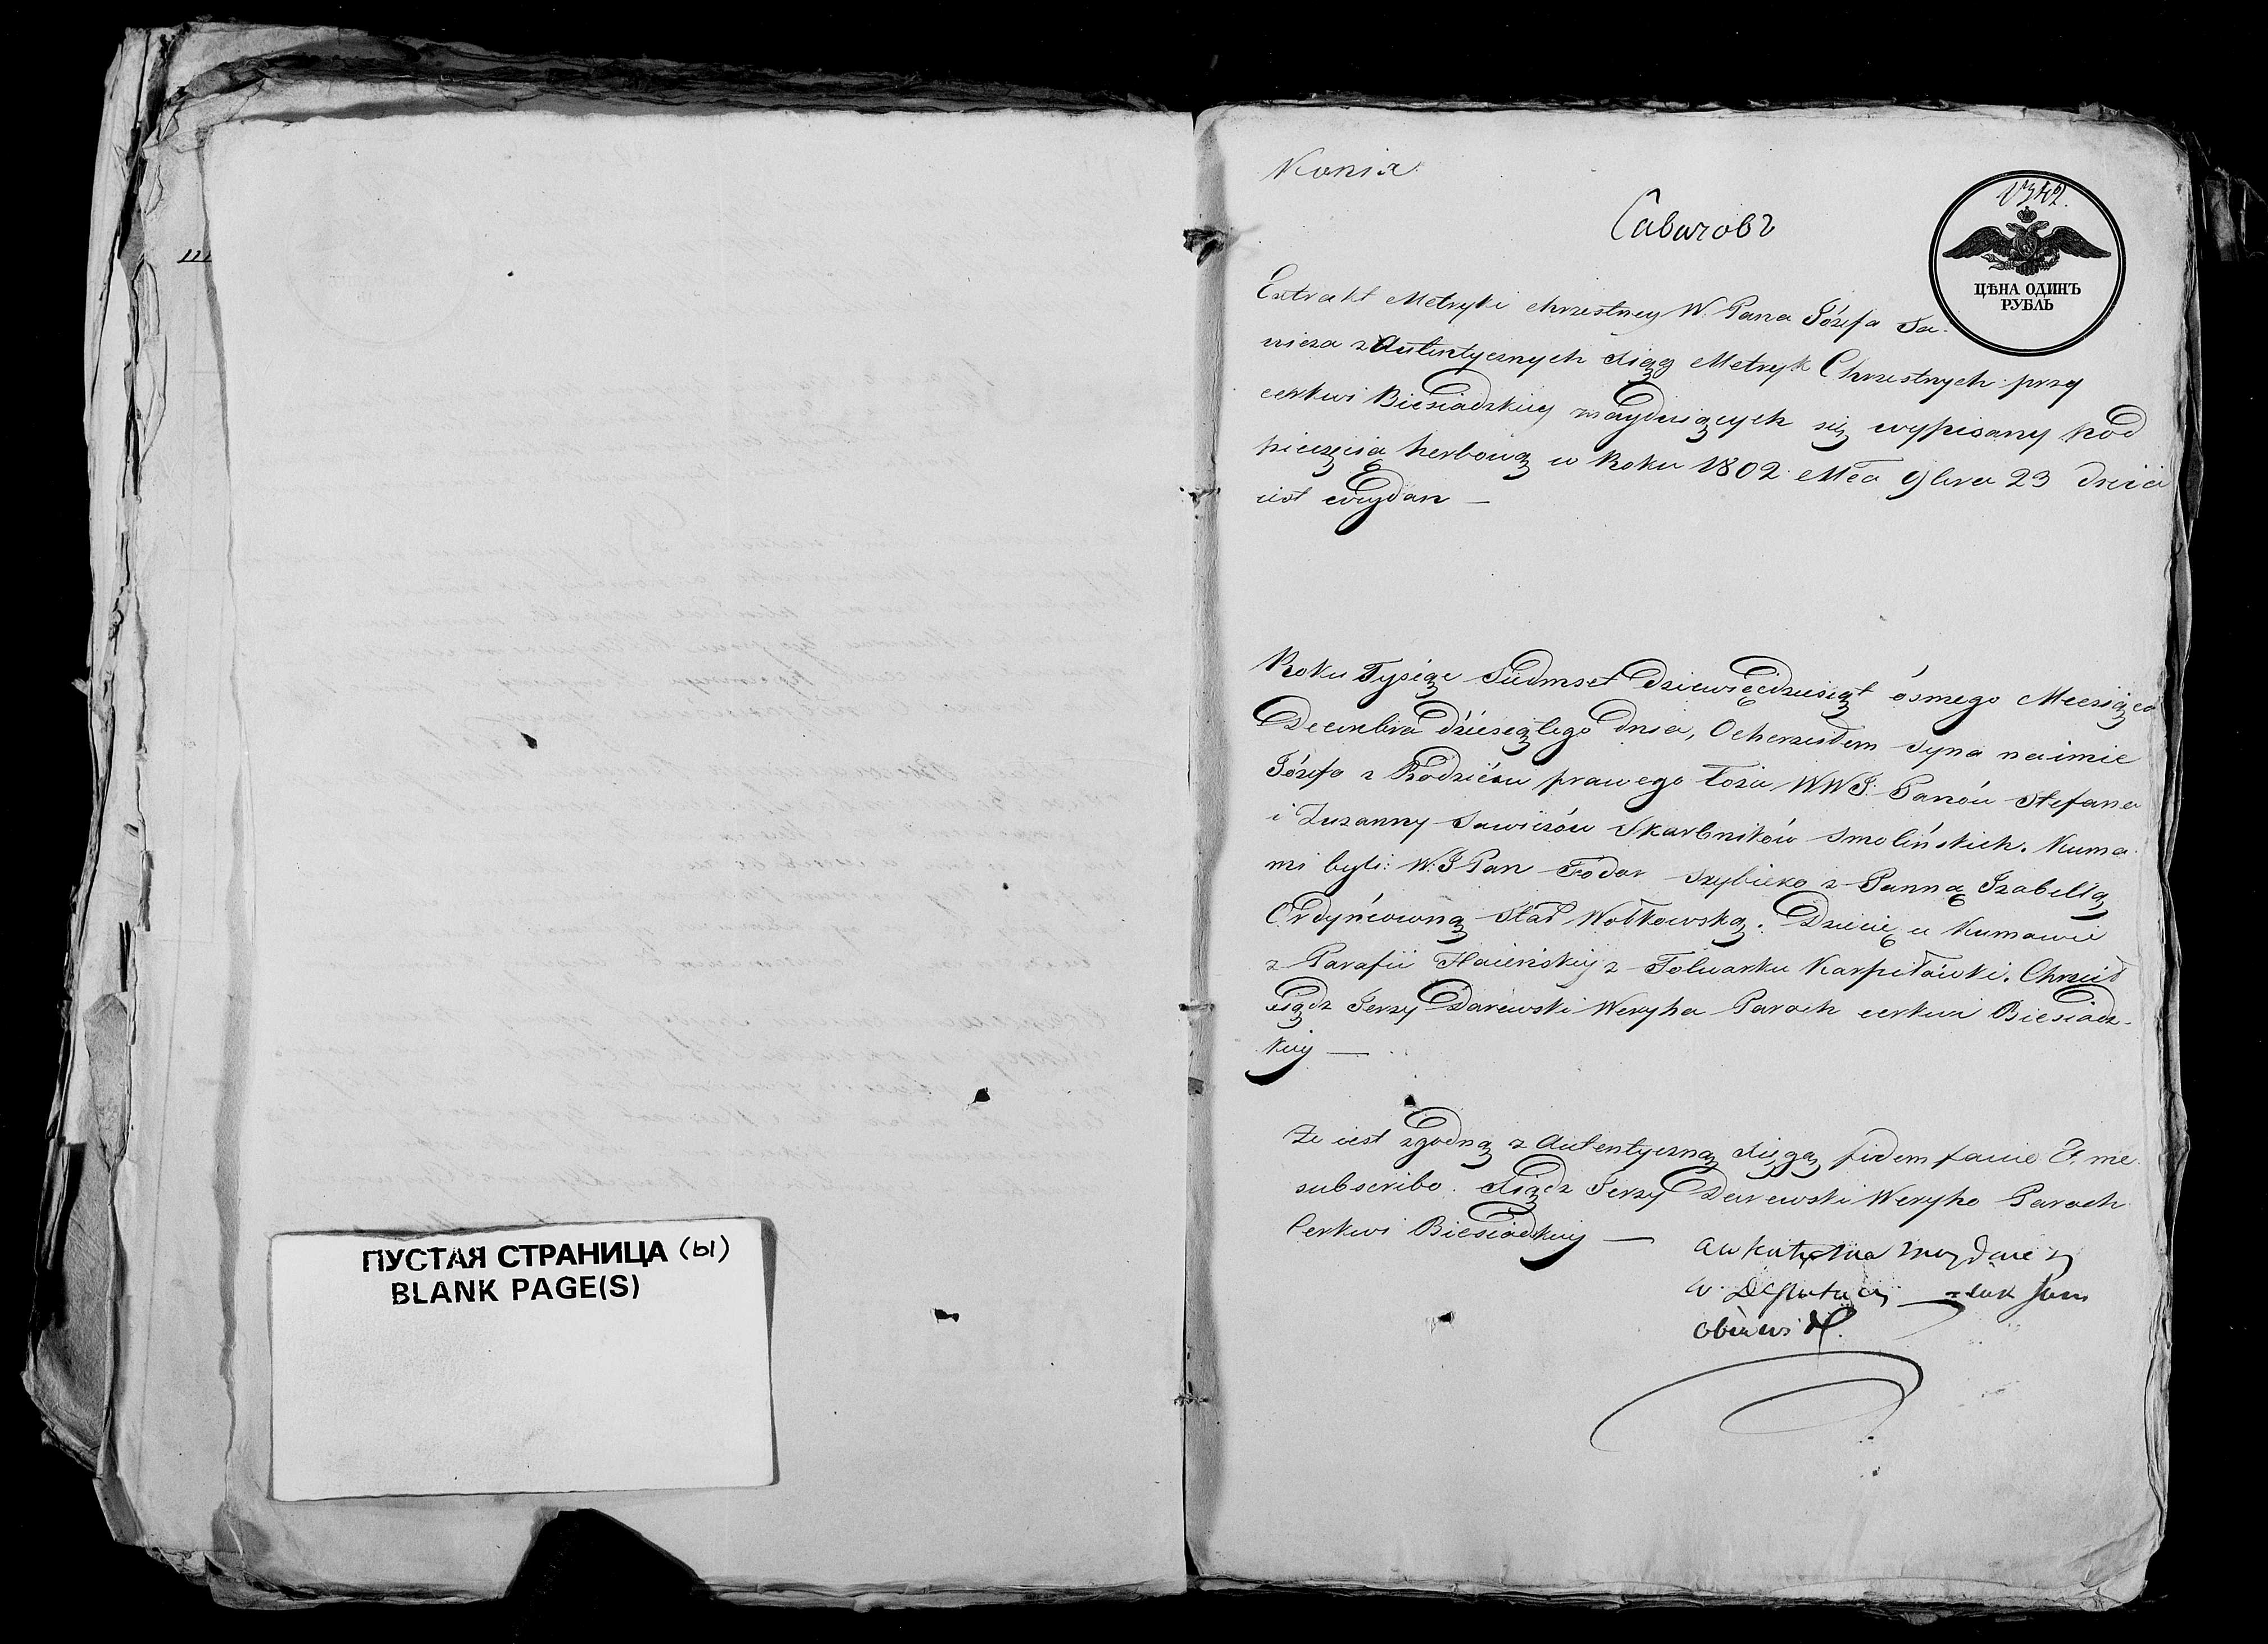 ПУСТАЯ СТРАНИЦА (ы)
BLANK PAGE(S)
Kopia
Савичовъ
1342.
ЦѢНА ОДИНЪ
РУБЛЬ
Extrakt Metryki chrzestney W. Pana Józefa Sa-
wicza z Autentycznych Xiąg Metryk Chrzestnych przy
cerkwi Biesiadzkiey znayduiących się wypisany pod
pieczęcią herbową w Roku 1802 Mca 9bra 23 dnia
iest wydan —
Roku Tysiąc Siedmset dziewięćdziesiąt ósmego Miesiąca
Decembra dziesiątego dnia, Ochrzciłem syna na imie
Józefa z Rodziców prawego łoża WWJ. Panów Stefana
i Zuzanny Sawiczów Skarbników Smolińskich. Kuma-
mi byli: W. J Pan Fódor Szybieko z Panną Izabellą
Ordyńcowną Stał Wołkowską. Dziecię u Kumowie
z Parafii Haieńskiy z Folwarku Karpiłówki. Chrzcił
xiądz Jerzy Darewski Weryha Paroch cerkwi Biesiadz-
kiey —
Że iest zgodną z Autentyczną Xięgą fidem facie Et me
subscribo. Xiądz Jerzy Darewski Weryho Paroch
Cerkwi Biesiadzkiey —
w Deputacyi